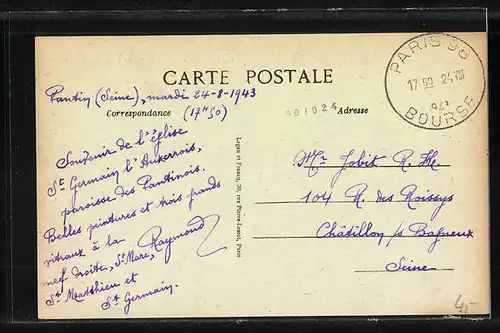 PARIS 98
17 50 24 VIII
1943
BOURSE
CARTE POSTALE
Pantin (Seine), mardi 24-8-1943
Correspondance
(17 H 50)
Adresse
Souvenir de l'église
St Germain l'Auxerrois,
paroisse des Pantinois.
Belles peintures et trois grands
vitraux à la
nef droite, St Marc, Raymond
St Matthieu et
St Germain.
rue Pierre-Lescot, Paris
Mr Jobit R. M
104 R. des Roissys
Châtillon s/s Bagneux
Seine